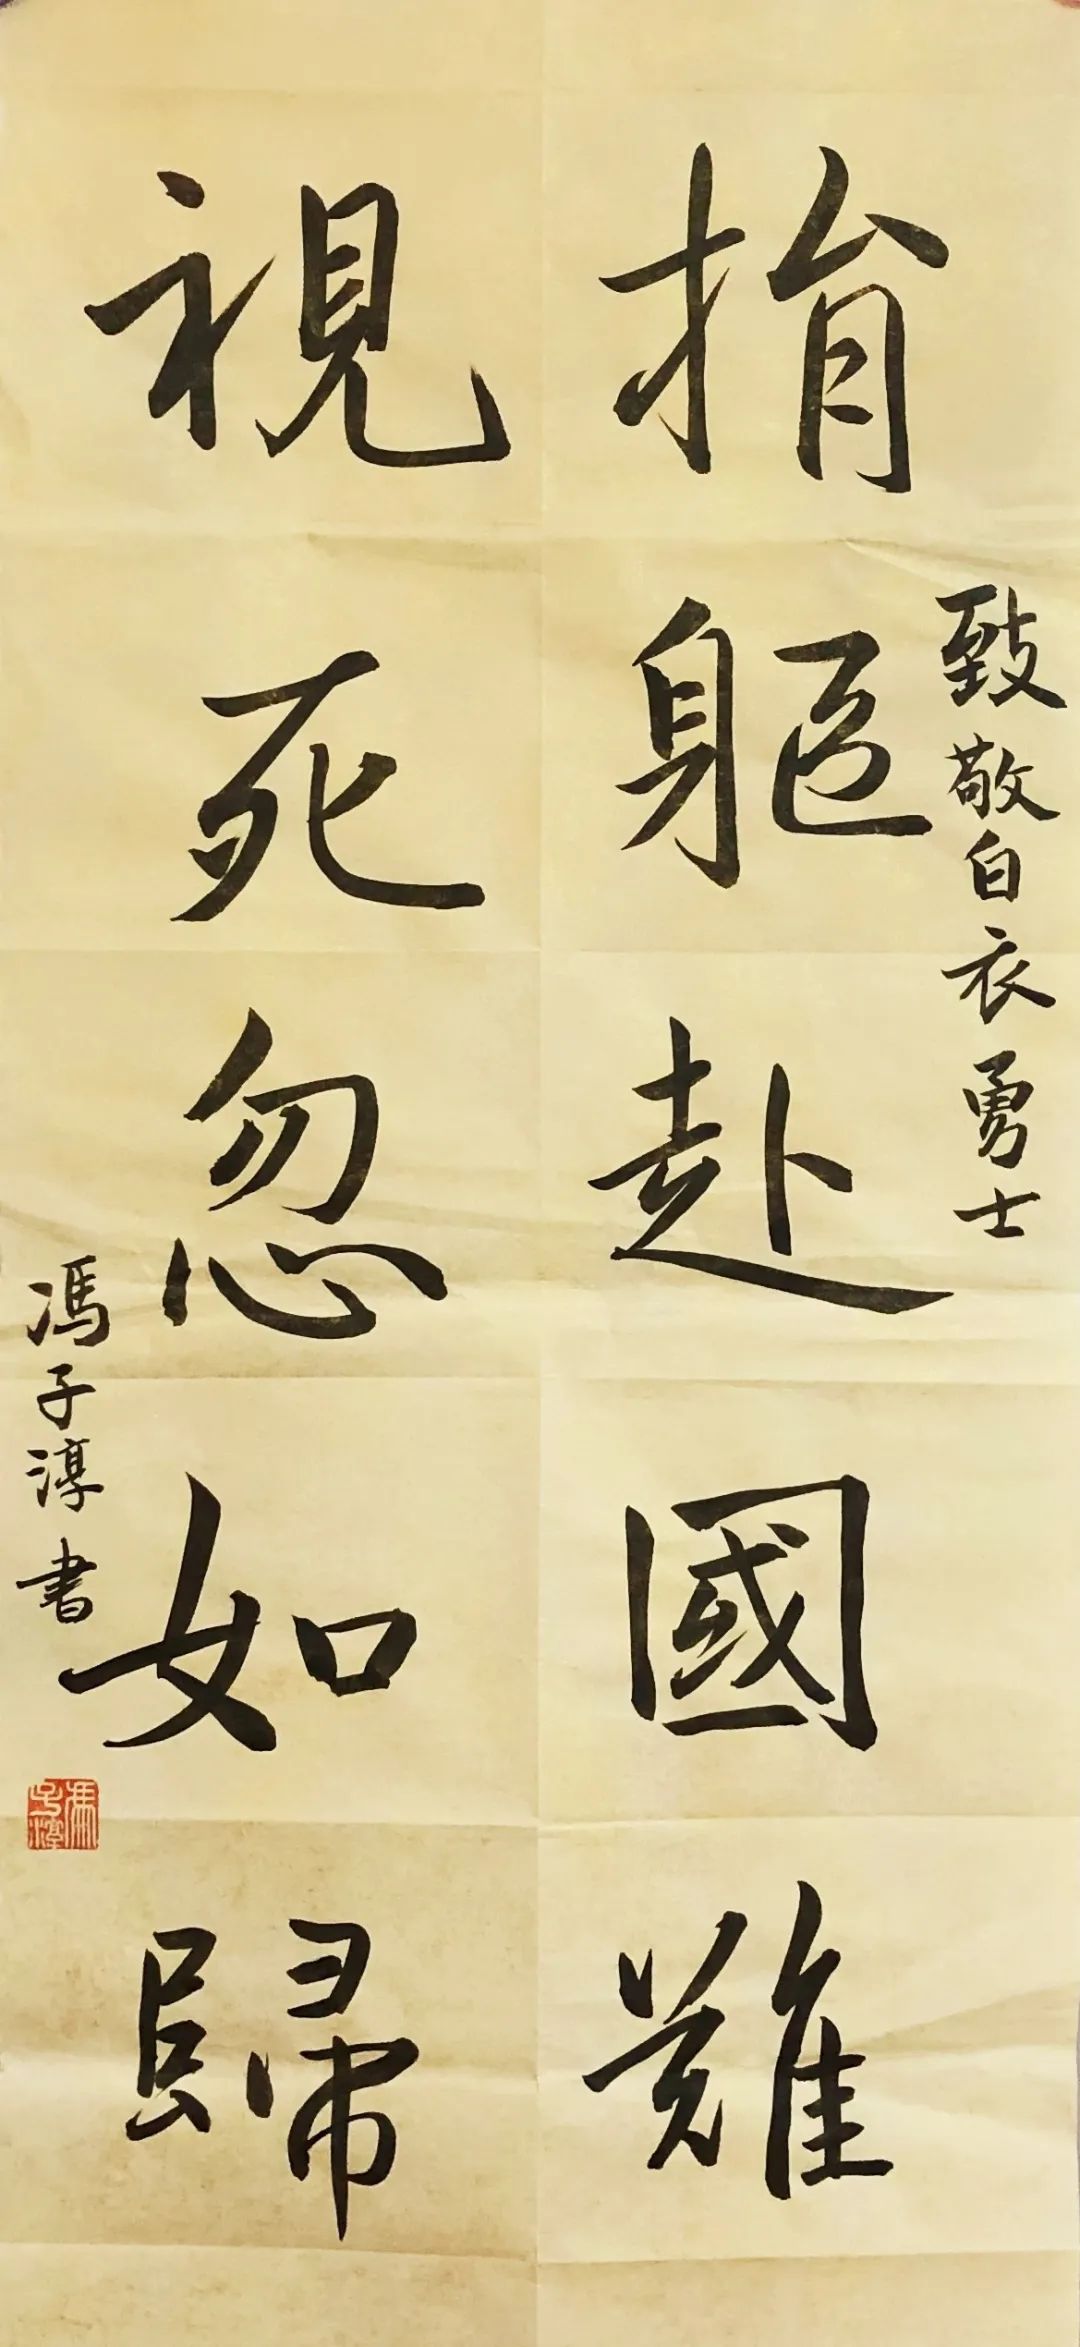 致敬白衣勇士
捐軀赴國難
視死忽如歸
馮子淳書
馮子淳